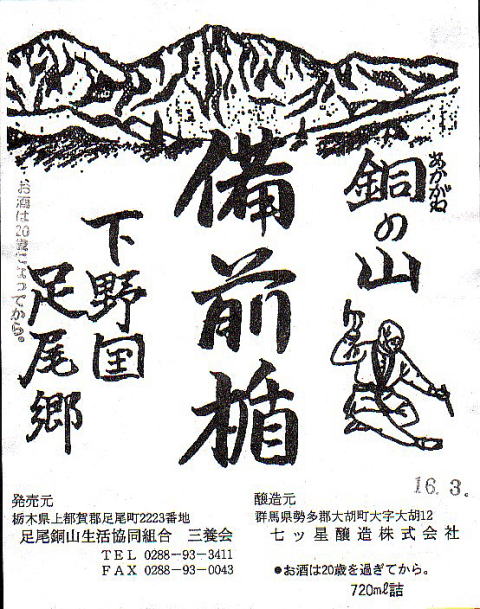 あかがね
銅の山
備前楯
下野国
足尾郷
お酒は20歳になってから。
16.3.
発売元
栃木県上都賀郡足尾町2223番地
足尾銅山生活協同組合 三養会
TEL 0288-93-3411
FAX 0288-93-0043
醸造元
群馬県勢多郡大胡町大字大胡12
七ッ星醸造株式会社
●お酒は20歳を過ぎてから。
720mℓ詰